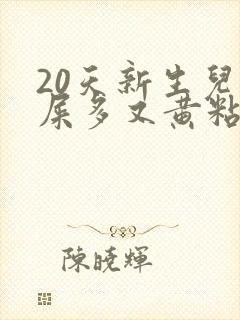 20天新生兒
屎多又黃粘
陳曉輝